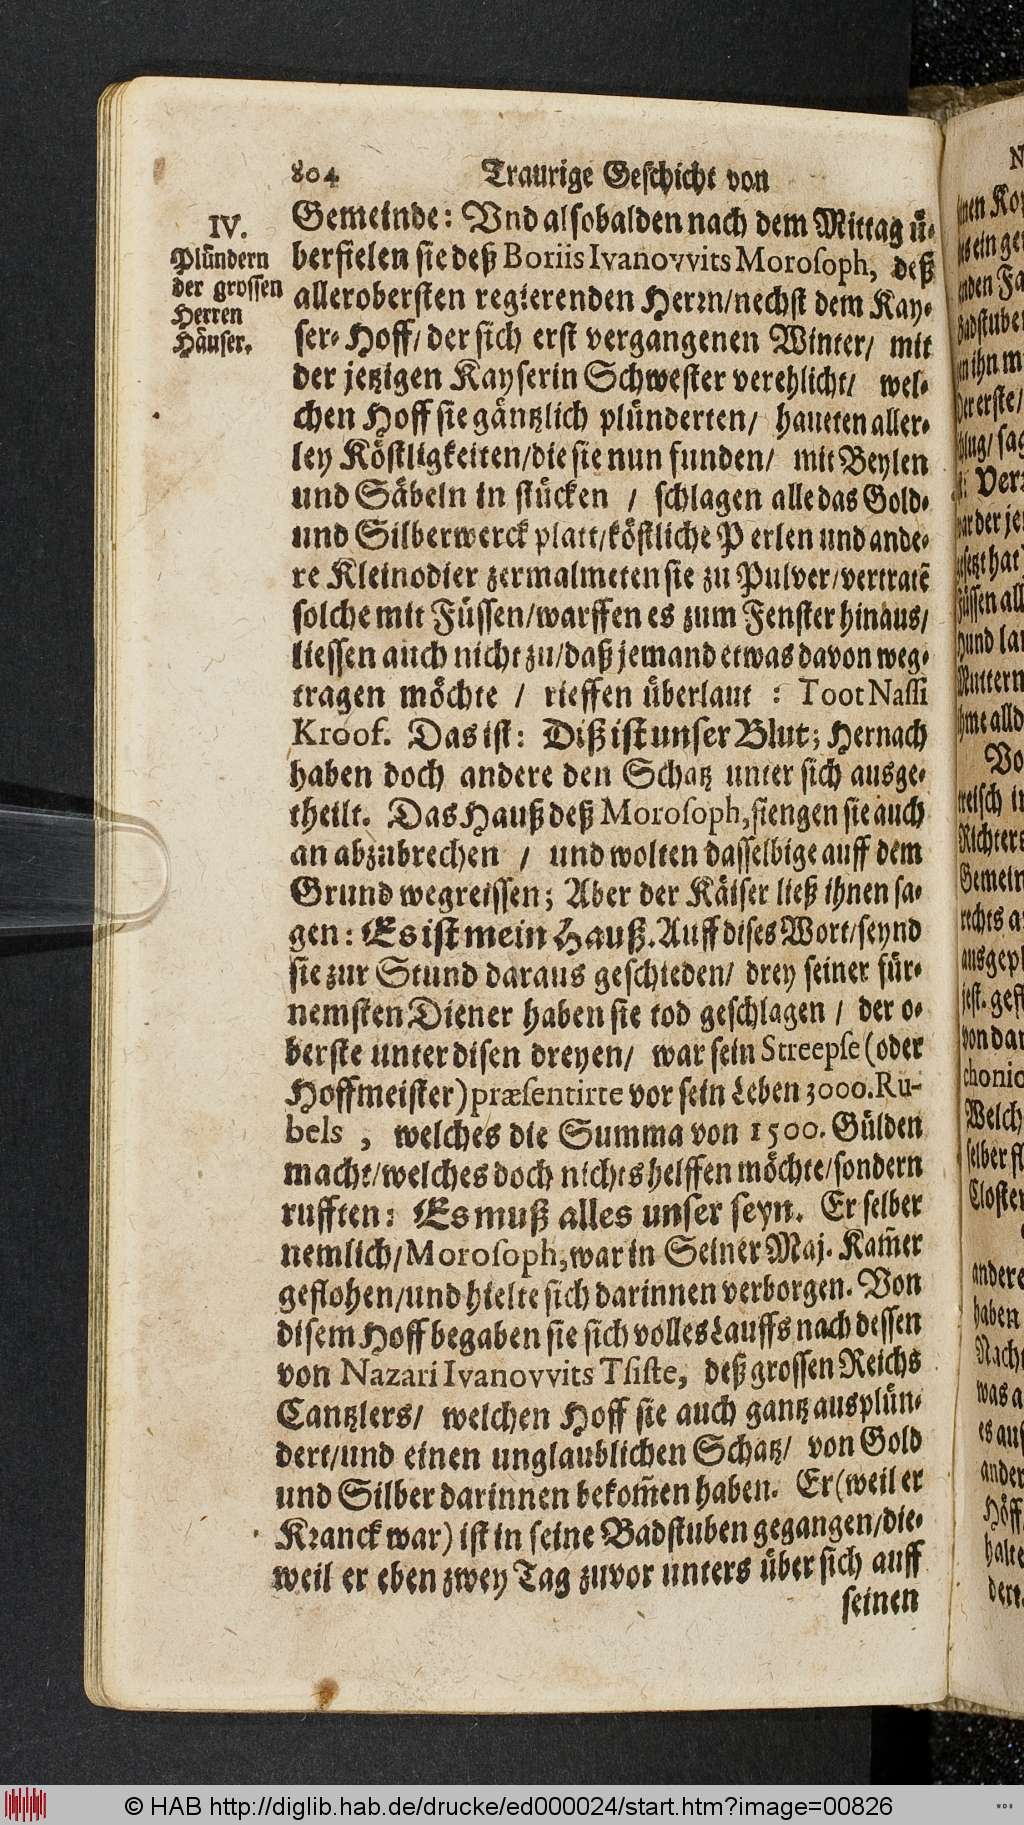 804 Traurige Geschicht von
IV.
Plündern
der grossen
Herren
Häuser.
Gemeinde: Vnd alsobalden nach dem Mittag ü-
berfielen sie deß Boriis Ivanovvits Morosoph, deß
allerobersten regierenden Herrn/nechst dem Kay-
ser-Hoff/ der sich erst vergangenen Winter/ mit
der jetzigen Kayserin Schwester verehlicht/ wel-
chen Hoff sie gäntzlich plünderten/ haueten aller-
ley Köstligkeiten/die sie nun funden/ mit Beylen
und Säbeln in stücken / schlagen alle das Gold-
und Silberwerck platt/köstliche Perlen und ande-
re Kleinodier zermalmeten sie zu Pulver/vertratẽ
solche mit Füssen/warffen es zum Fenster hinaus/
liessen auch nicht zu/daß jemand etwas davon weg-
tragen möchte / rieffen überlaut : Toot Nassi
Kroof. Das ist: Diß ist unser Blut; Hernach
haben doch andere den Schatz unter sich ausge-
theilt. Das Hauß deß Morosoph, fiengen sie auch
an abzubrechen / und wolten dasselbige auff dem
Grund wegreissen; Aber der Käiser ließ ihnen sa-
gen: Es ist mein Hauß. Auff dises Wort/seynd
sie zur Stund daraus geschieden/ drey seiner für-
nemsten Diener haben sie tod geschlagen / der o-
berste unter disen dreyen/ war sein Streepse (oder
Hoffmeister) præsentirte vor sein Leben 3000. Ru-
bels , welches die Summa von 1500. Gülden
macht/welches doch nichts helffen möchte/sondern
rufften: Es muß alles unser seyn. Er selber
nemlich/Morosoph, war in Seiner Maj. Kam̃er
geflohen/und hielte sich darinnen verborgen. Von
disem Hoff begaben sie sich volles Lauffs nach dessen
von Nazari Ivanovvits Tsiste, deß grossen Reichs
Cantzlers/ welchen Hoff sie auch gantz ausplün-
dert/und einen unglaublichen Schatz/ von Gold
und Silber darinnen bekom̃en haben. Er (weil er
Kranck war) ist in seine Badstuben gegangen/die-
weil er eben zwey Tag zuvor unters über sich auff
seinen
© HAB http://diglib.hab.de/drucke/ed000024/start.htm?image=00826